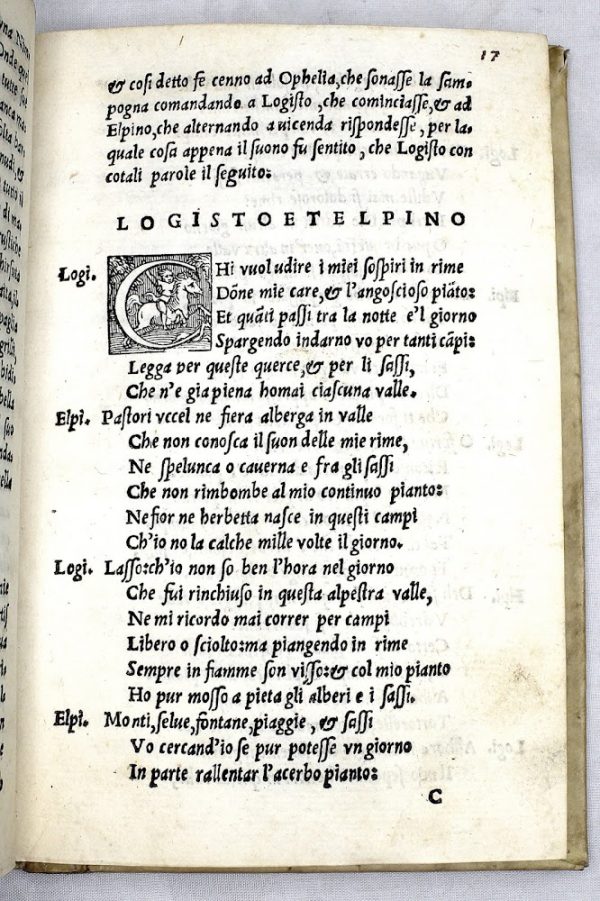 17
& cosi detto fe cenno ad Ophelia, che sonasse la sam-
pogna comandando a Logisto, che cominciasse, & ad
Elpino, che alternando a vicenda rispondesse, per la
quale cosa appena il suono fu sentito, che Logisto con
cotali parole il seguito:
LOGISTO ET ELPINO
Logi. CHi vuol udire i miei sospiri in rime
Dõne mie care, & l'angoscioso piãto:
Et quãti passi tra la notte e'l giorno
Spargendo indarno vo per tanti cãpi:
Legga per queste querce, & per li sassi,
Che n'e gia piena homai ciascuna valle.
Elpi. Pastori vccel ne fiera alberga in valle
Che non conosca il suon delle mie rime,
Ne spelunca o cauerna e fra gli sassi
Che non rimbombe al mio continuo pianto:
Ne fior ne herbetta nasce in questi campi
Ch'io no la calche mille volte il giorno.
Logi. Lasso: ch'io non so ben l'hora nel giorno
Che fui rinchiuso in questa alpestra valle,
Ne mi ricordo mai correr per campi
Libero o sciolto: ma piangendo in rime
Sempre in fiamme son visso: & col mio pianto
Ho pur mosso a pieta gli alberi e i sassi.
Elpi. Monti, selue, fontane, piaggie, & sassi
Vo cercand'io se pur potesse vn giorno
In parte rallentar l'acerbo pianto:
C